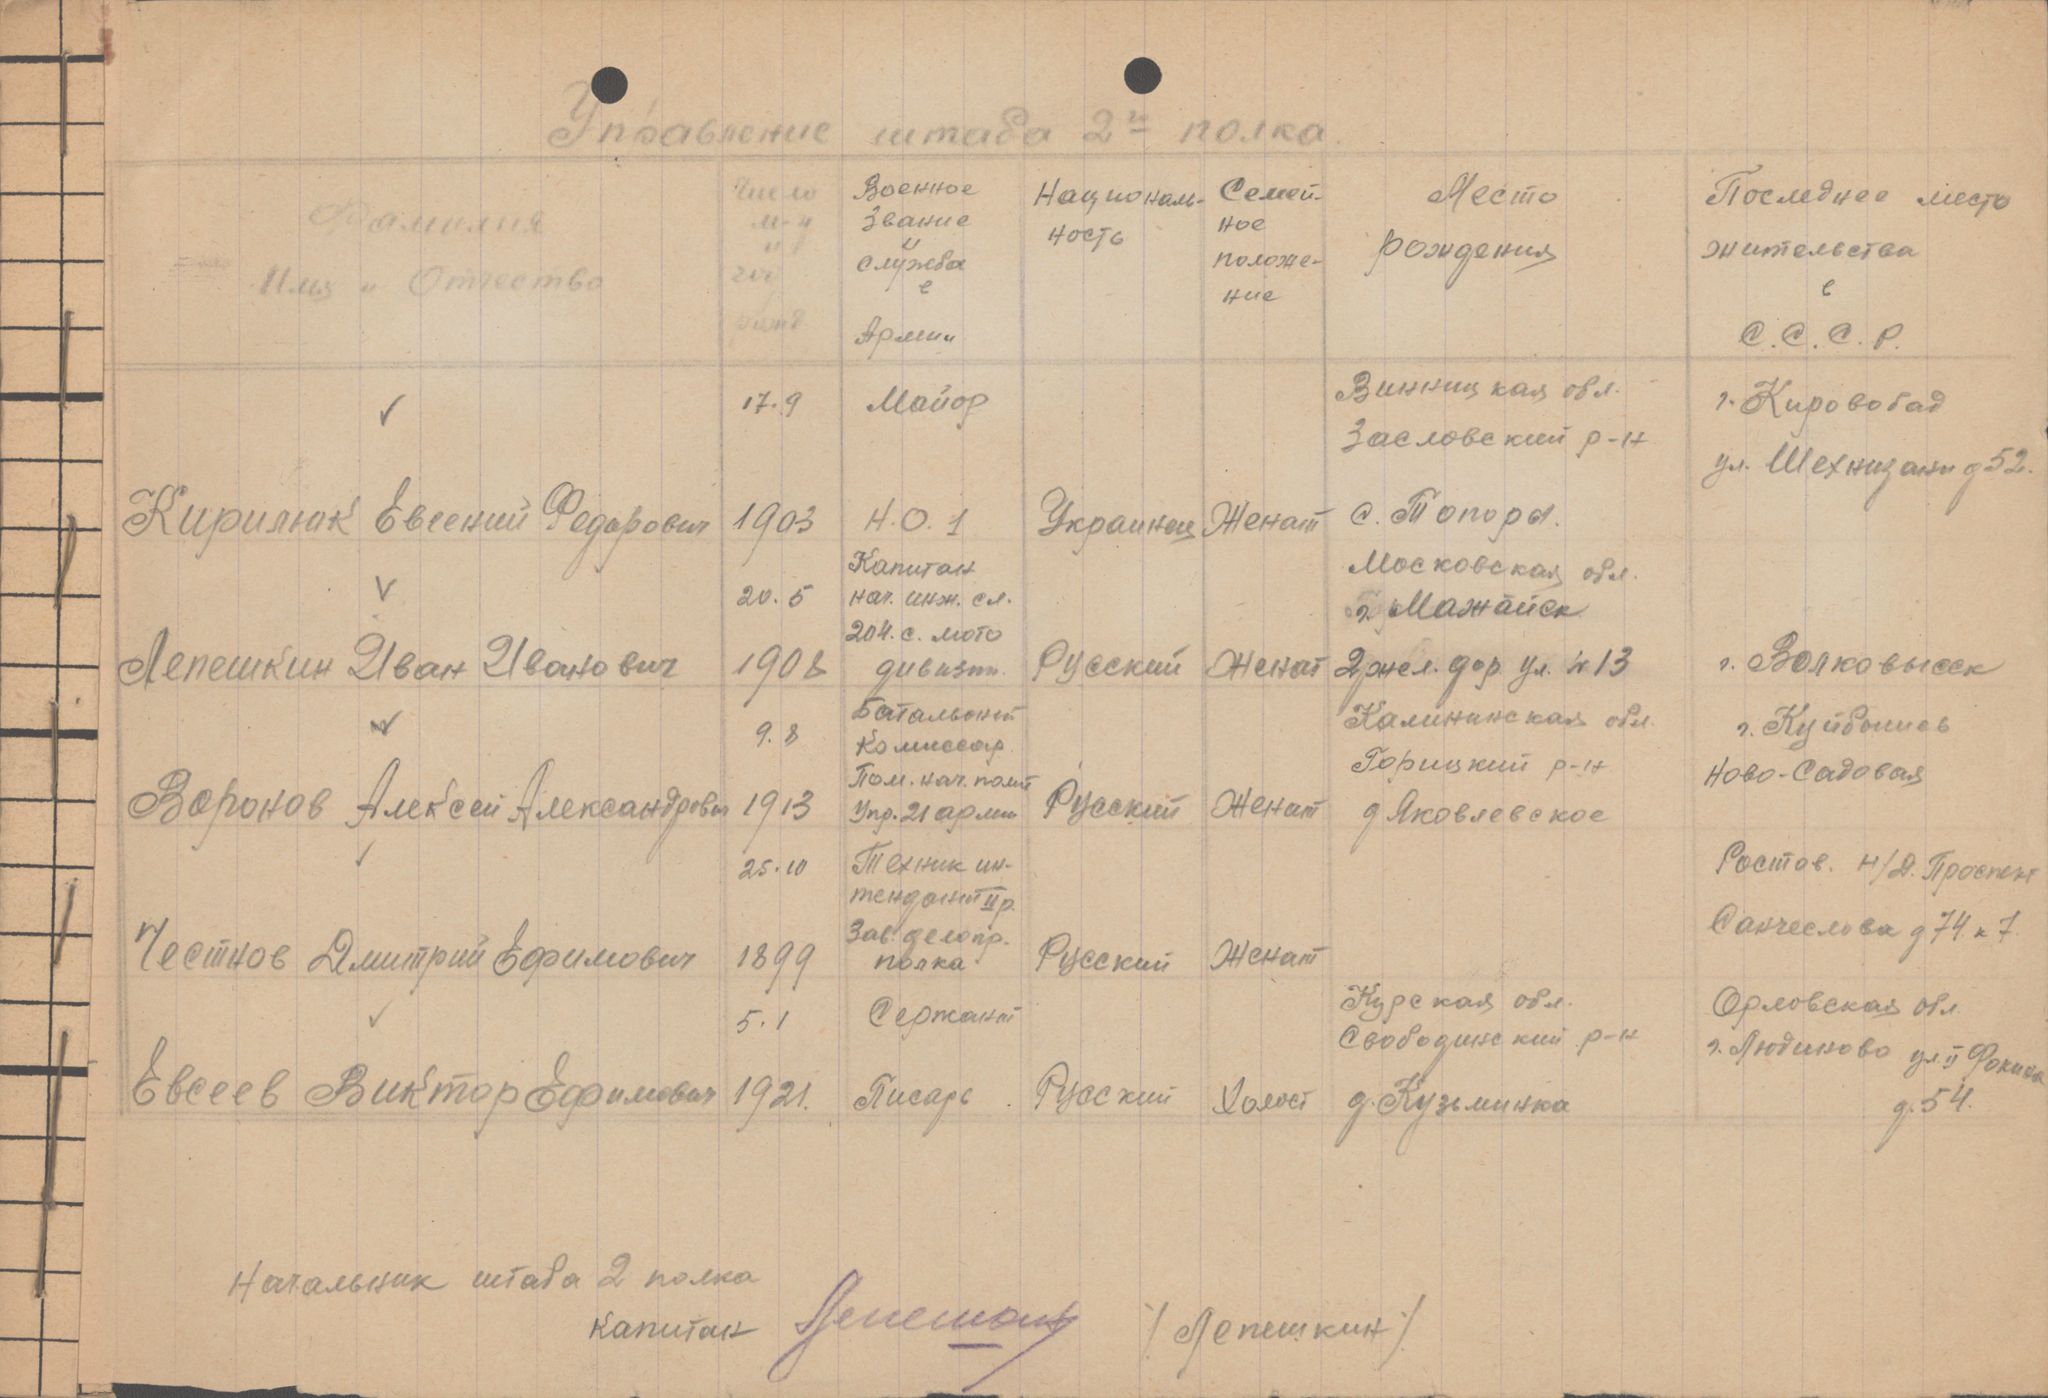 Управление штаба 2го полка.
Фамилия
Имя и Отчество
Число
м-ц
год
рожд
Военное
Звание
и
служба
в
Армии
Националь-
ность
Семей-
ное
положе-
ние
Место
рождения
Последнее место
жительства
в
С.С.С.Р.
Кирилюк Евгений Федорович
17.9
1903
Майор
Н.О.1
Украинец
Женат
Винницкая обл.
Засловский р-н
с. Топоры.
г. Кировобад
ул. д 52.
Лепешкин Иван Иванович
20.5
1908
Капитан
нач. инж. сл.
204. с. мото
дивизии.
Русский
Женат
Московская обл.
г. Мажайск
2 жел. дор. ул. №13
г. Волковысск
Воронов Алексей Александрович
9.8
1913
Батальоный
Комиссар.
Пом. нач. полит
Упр. 21 армии
Русский
Женат
Калининская обл.
Горицкий р-н
д Яковлевское
г. Куйбышев
Ново-Садовая
Честнов Дмитрий Ефимович
25.10
1899
Техник ин-
тендант II р.
Зав. делопр.
полка
Русский
Женат
Ростов. Н/Д. Проспект
д 74 к 7.
Евсеев Виктор Ефимович
5.1
1921.
Сержант
Писарь
Русский
Холост
Курская обл.
Свободинский р-н
д. Кузьминка
Орловская обл.
г. Людиново ул. II Фокина
д. 54.
Начальник штаба 2 полка
капитан
/Лепешкин/